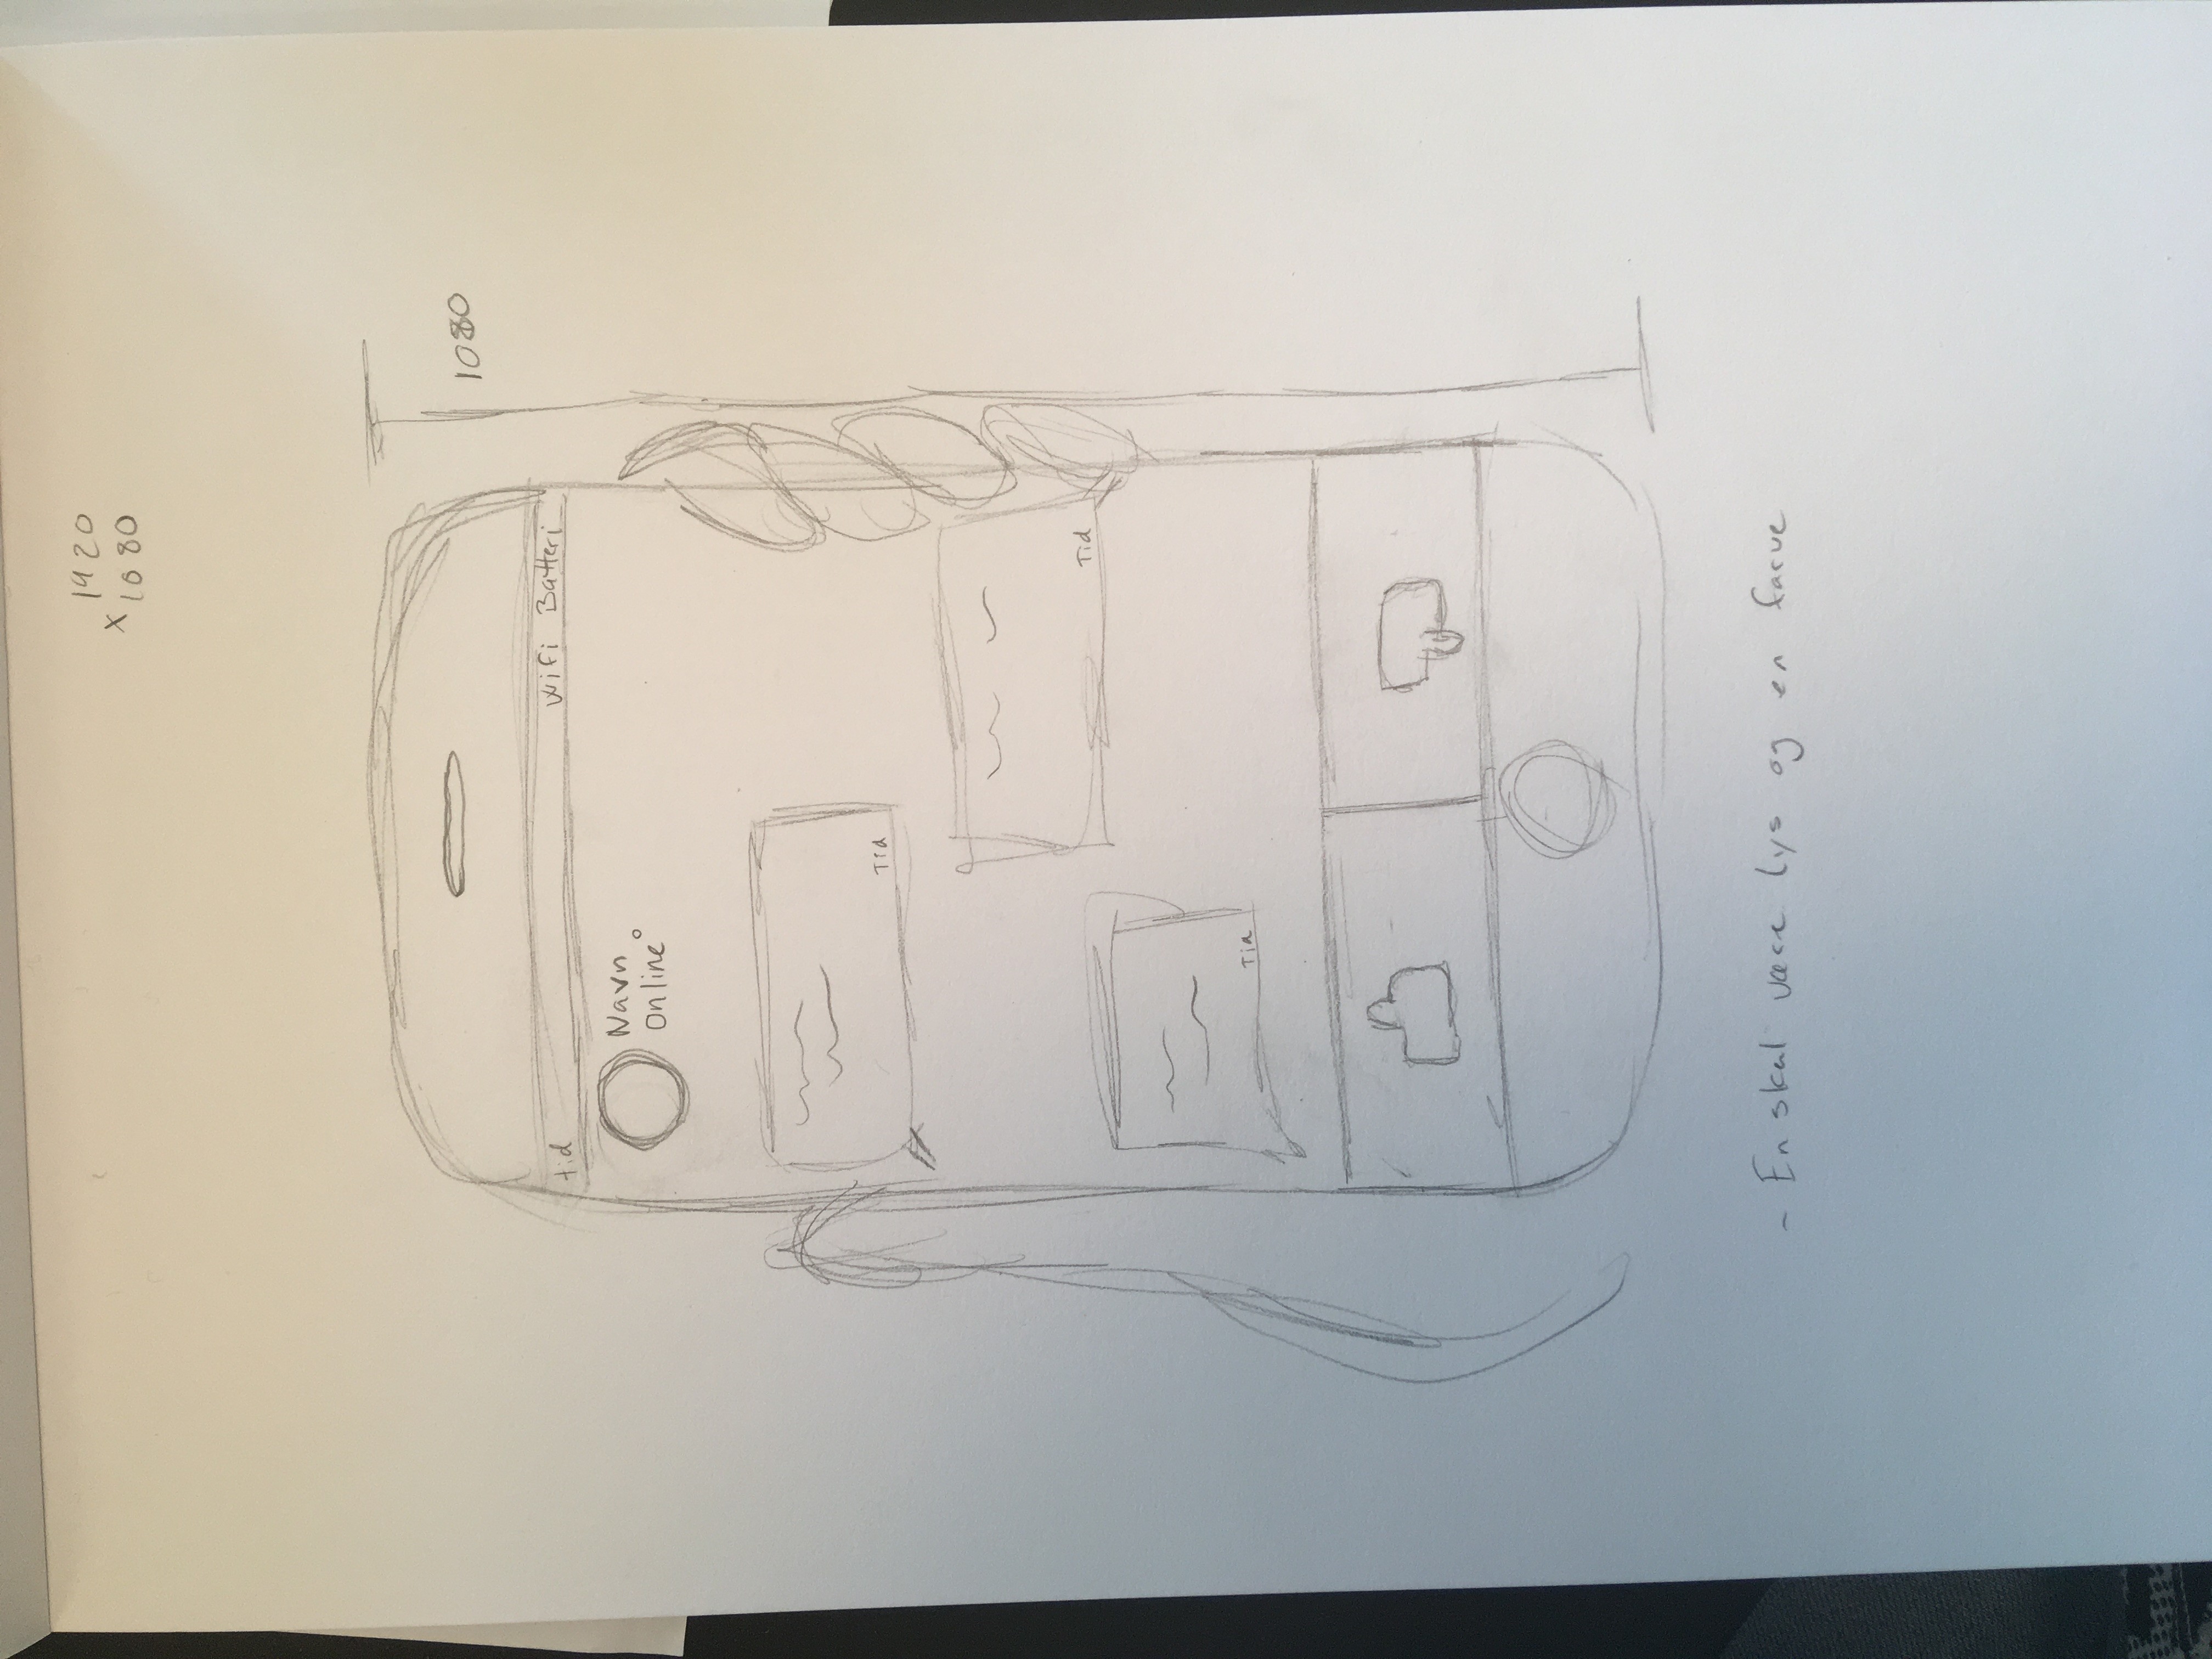 1920
x 1080
1080
tid Wifi Batteri
Navn
Online
Tid
Tid
Tid
- En skal være lys og en farve